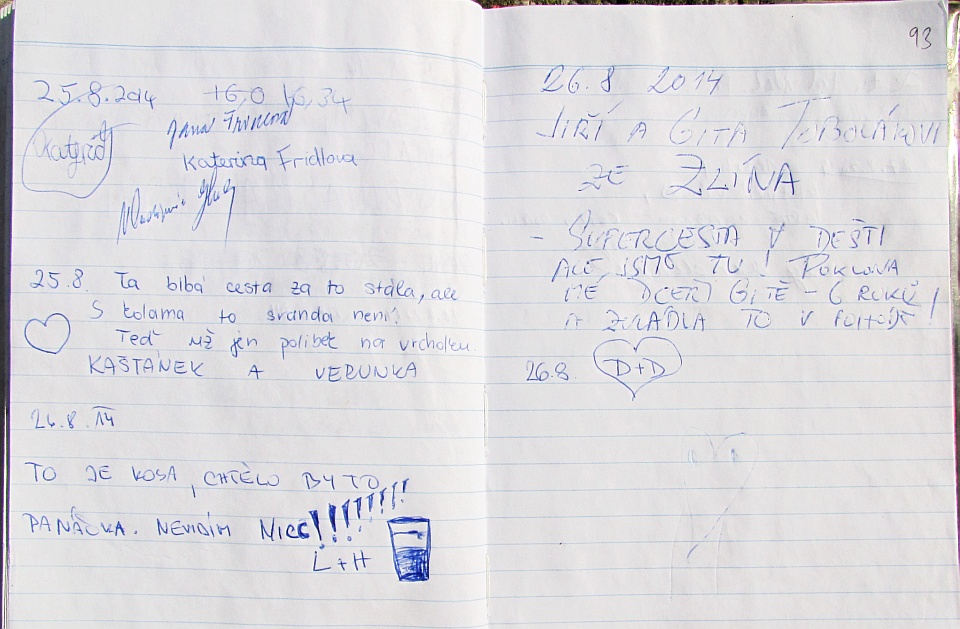 25.8.2014 16,34
Jana
Kateřina Fridlova
25.8. Ta blbá cesta za to stála, ale
S kolama to sranda není!
Teď už jen polibek na vrcholku
KAŠTÁNEK A VERUNKA
26.8.14
TO JE KOSA, CHTĚLO BY TO
PANÁČKA. NEVIDÍM NIC!!!!!!!!!
L + H
93
26.8 2014
JIŘÍ A GITA
ZE ZLÍNA
- SUPERCESTA V DEŠTI
ALE JSME TU! POKLONA
MÉ DCERI GITĚ - 6 ROKŮ
A ZVLÁDLA TO V POHODĚ!
26.8. D+D